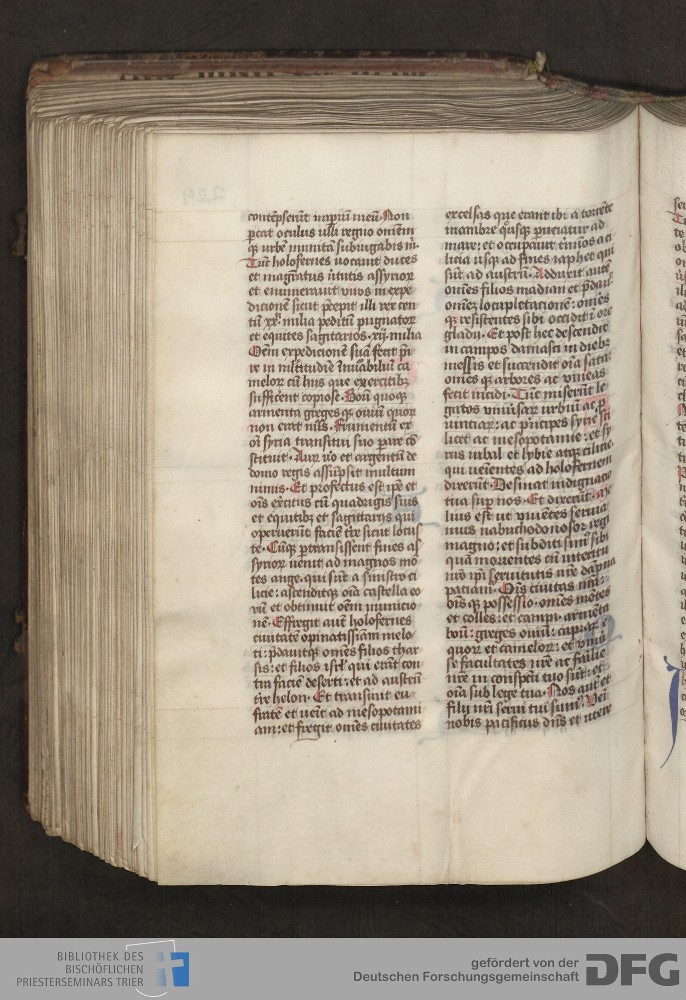 contēpserūt imperiū meū. Non
ꝑcat oculus ulli regno omnem
qꝫ urbē munitā subiugabis m̄.
Tūc holofernes uocauit duces
et magratus ūtutis assyrioꝝ
et enumerauit viros in expe
dicionē sicut p̄cepit illi rex cen
tū xx milia peditū pugnatoꝝ
et equites sagitarios. xij. milia
Oēm expedicionē suā fecit p̄i
re in multitudīe īnuābiliū ca
meloꝝ cū hiis que exercitibꝫ
sufficerent copiose. Boū quoqꝫ
armenta gregesqꝫ ouiū quoꝝ
non erat nūs. Frumentū ex
oī syria transitui suo parare cō
stituit. Aurū uo et argentū de
domo regis assūpsit multum
nimis. Et profectus est ipe et
oīs excitus cū quadrigis suis
et equitibꝫ et sagittariis qui
operuerūt faciē tre sicut locus
te. Cūqꝫ ptransissent fines as
syrioꝝ uenit ad magnos mō
tes ange. qui sūt a sinistro ci
licie: ascenditqꝫ oīa castella eo
rū et obtinuit oēm municio
nē. Effregit autē holofernes
ciuitatē opinatissimā melo
ti: p̄dauitqꝫ omēs filios thar
sis: et filios isrl qui erāt con
tra faciē deserti: et ad austrū
tre helon. Et transiuit eu
fratē et uenit ad mesopotami
am: et fregit omēs ciuitates
excelsas que erant ibi a torrēte
mambre usqꝫ ꝑueniatur ad
mare: et occupauit t̄minos a ci
licia usqꝫ ad fines iaphet qui
sūt ad austrū. Adduxit autē
omēs filios madian et p̄dauit
omēꝫ locupletacionē: omēs
qꝫ resistentes sibi occidit ī ore
gladii. Et post hec descendit
in campos damasci in diebꝫ
messis et succendit oīa sata:
omēs qꝫ arbores ac vineas
fecit incidi. Tūc miserūt le
gatos vniūsaꝝ urbiū ac ꝓ
uinciaꝝ: ac p̄ncipes syrie sci
licet ac mesopotamie: et sy
rie subal et lybie atqꝫ cilicie.
qui uenientes ad holofernem
dixerūt. Desinat indignacio
tua sup nos. Et dixerūt. Me
lius est ut viuētes seruia
mus nabuchodonosor regi
magno: et subditi simꝰ tibi
quā morientes cū interitu
nr̄o ipi seruitutis nr̄e dāpna
paciam. Oīs ciuitas nr̄a:
oīs qꝫ possessio. omēs mōtes
et colles: et campi. armēta
boū: greges ouiū: capraꝝ
quoꝝ et cameloꝝ: et vniū
se facultates nr̄e ac familie
nr̄e in conspcū tuo sūt: et
oīa sub lege tua. Nos autē et
filii nr̄i serui tui sumꝰ. Veni
nobis pacificus dn̄s et utere
BIBLIOTHEK DES
BISCHÖFLICHEN
PRIESTERSEMINARS TRIER
gefördert von der
Deutschen Forschungsgemeinschaft
DFG